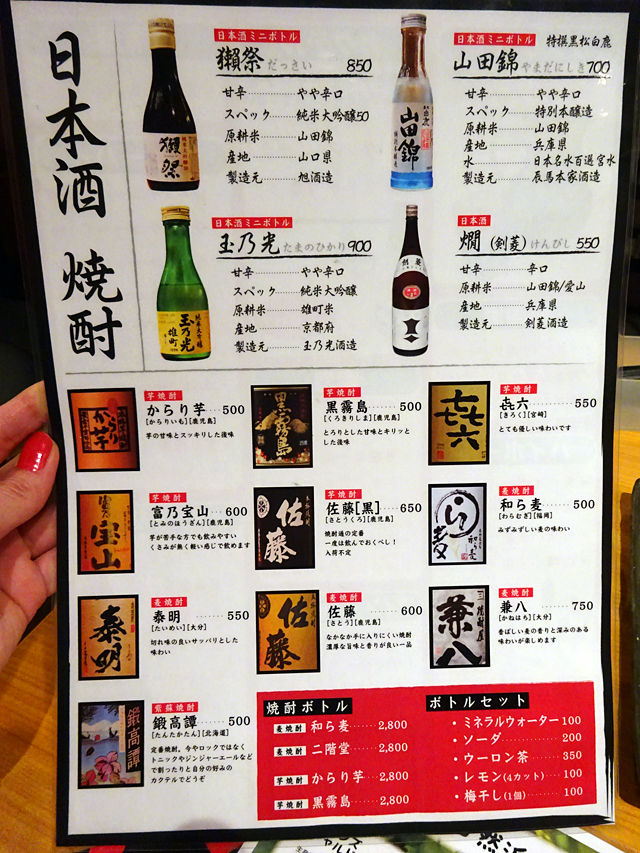 日本酒 焼酎
日本酒ミニボトル
獺祭 だっさい 850
甘辛 やや辛口
スペック 純米大吟醸50
原耕米 山田錦
産地 山口県
製造元 旭酒造
日本酒ミニボトル 特撰黒松白鹿
山田錦 やまだにしき 700
甘辛 やや辛口
スペック 特別本醸造
原耕米 山田錦
産地 兵庫県
水 日本名水百選宮水
製造元 辰馬本家酒造
日本酒ミニボトル
玉乃光 たまのひかり 900
甘辛 やや辛口
スペック 純米大吟醸
原耕米 雄町米
産地 京都府
製造元 玉乃光酒造
日本酒
燗(剣菱) けんびし 550
甘辛 辛口
原耕米 山田錦/愛山
産地 兵庫県
製造元 剣菱酒造
獺祭
山田錦
玉乃光
雄町
剣菱
芋焼酎
からり芋 500
[からりいも][鹿児島]
芋の甘味とスッキリした後味
芋焼酎
黒霧島 500
[くろきりしま][鹿児島]
とろりとした甘味とキリッと
した後味
芋焼酎
㐂六 500
[きろく][宮崎]
とても優しい味わいです
芋焼酎
富乃宝山 600
[とみのほうざん][鹿児島]
芋が苦手な方でも飲みやすい
くさみが無く軽い感じで飲めます
芋焼酎
佐藤[黒] 650
[さとうくろ][鹿児島]
焼酎通の定番
一度は飲んでおくべし!
入荷不定
麦焼酎
和ら麦 500
[わらむぎ][福岡]
みずみずしい麦の味わい
麦焼酎
泰明 550
[たいめい][大分]
切れ味の良いサッパリとした
味わい
芋焼酎
佐藤 600
[さとう][鹿児島]
なかなか手に入りにくい焼酎
濃厚な旨味と香りが良い一品
麦焼酎
兼八 750
[かねはち][大分]
香ばしい麦の香りと深みのある
味わいが楽しめます
紫蘇焼酎
鍛高譚 500
[たんたかたん][北海道]
定番焼酎。今やロックではなく
トニックやジンジャーエールなど
で割ったりと自分の好みの
カクテルでどうぞ
からり芋
黒霧島
㐂六
宝山
佐藤
泰明
佐藤
兼八
鍛高譚
焼酎ボトル
麦焼酎 和ら麦 2,800
麦焼酎 二階堂 2,800
芋焼酎 からり芋 2,800
芋焼酎 黒霧島 2,800
ボトルセット
・ミネラルウォーター 100
・ソーダ 200
・ウーロン茶 350
・レモン(4カット) 100
・梅干し(1個) 100